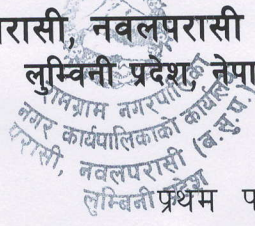 रासी, नवलपरासी
लुम्बिनी प्रदेश, नेपा
रामग्राम नगरपालिका
नगर कार्यपालिकाको कार्यालय
परासी, नवलपरासी (ब.सु.प.)
लुम्बिनी प्रदेश
प्रथम प